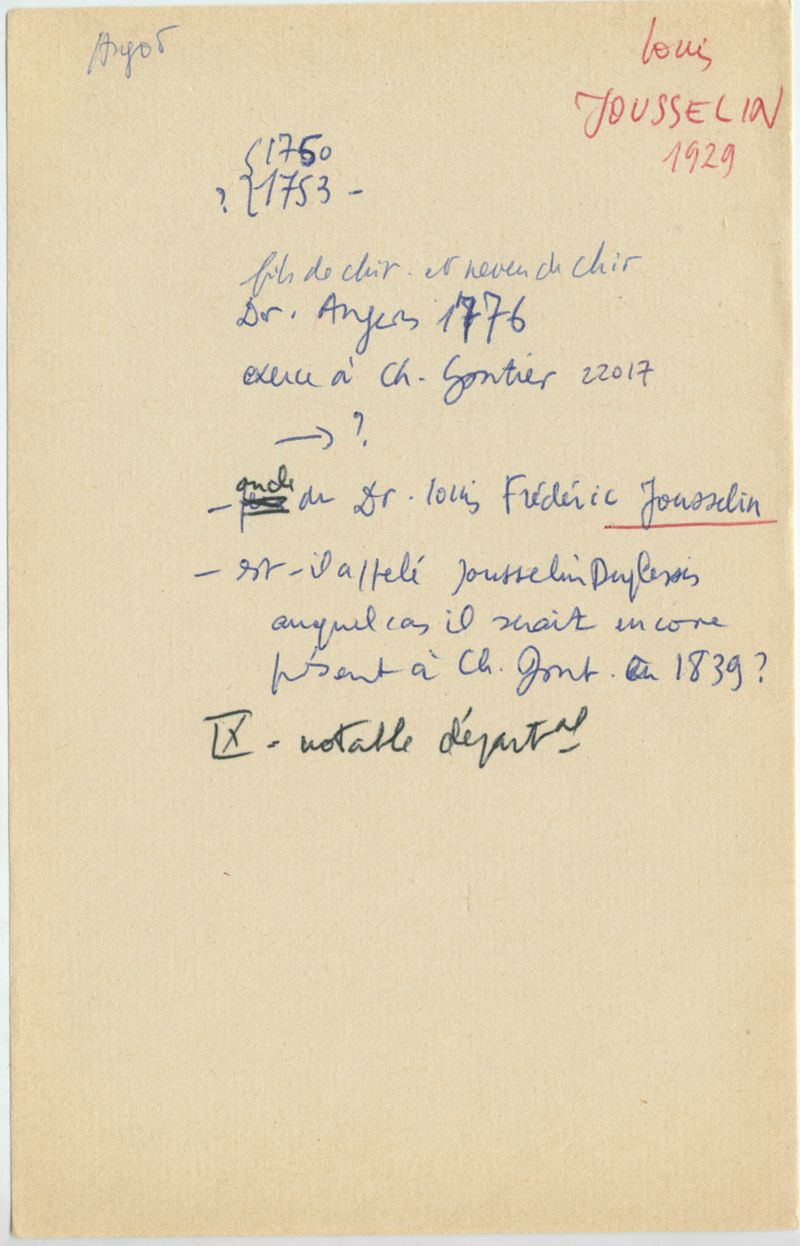 Argot
Louis
JOUSSELIN
1929
{ 1760
? { 1753 -
fils de chir. et neveu de chir
Dr. Angers 1776
exerce à Ch. Gontier 22017
→ ?
- oncle du Dr. Louis Frédéric Jousselin
- est-il appelé Jousselin Duplessis
auquel cas il serait encore
présent à Ch. Gont. en 1839?
IX - notable départal